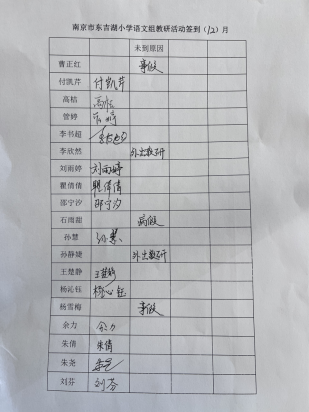 南京市东吉湖小学语文组教研活动签到（12）月
未到原因
曹正红 事假
付凯芹 付凯芹
高桔
管婷
李书超
李欣然 外出教研
刘雨婷 刘雨婷
瞿倩倩 瞿倩倩
邵宁汐 邵宁汐
石雨甜 病假
孙慧 孙慧
孙静婕 外出教研
王楚静
杨沁钰 杨沁钰
杨雪梅 事假
余力 余力
朱倩 朱倩
朱尧
刘芬 刘芬